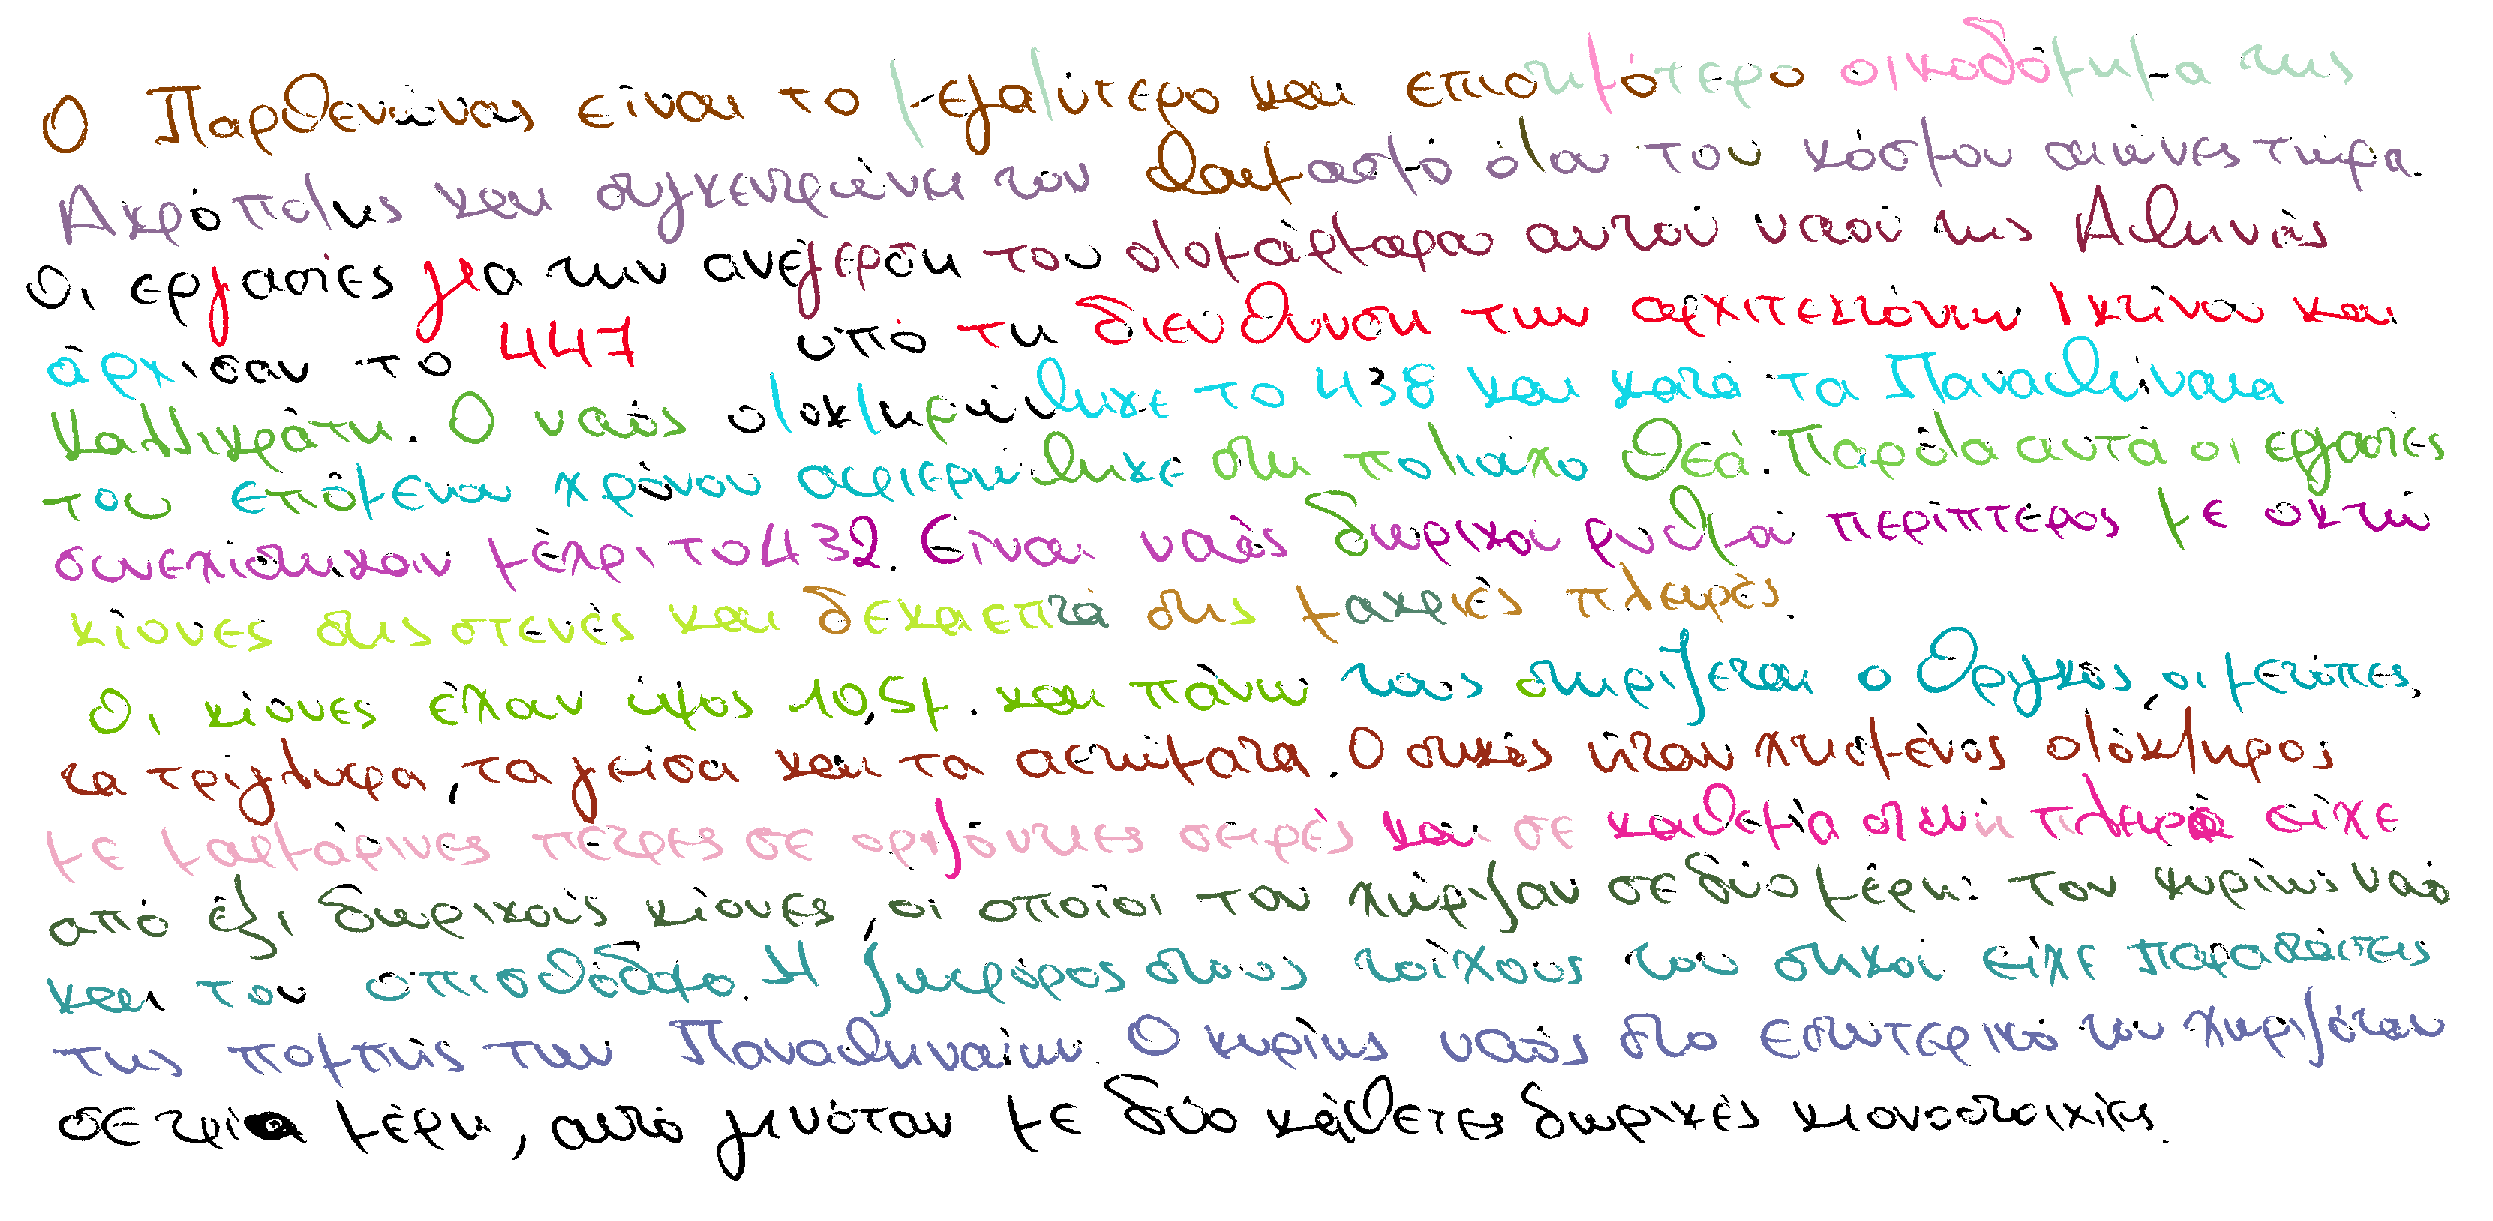 Ο Παρθενώνας είναι το μεγαλύτερο και επισημότερο οικοδόμημα της
Ακρόπολης και συγκεντρώνει τον θαυμασμό όλου του κόσμου αιώνες τώρα.
Οι εργασίες για την ανέγερση του ολομάρμαρου αυτού ναού της Αθηνάς
άρχισαν το 447 υπό τη διεύθυνση των αρχιτεκτόνων Ικτίνου και
Καλλικράτη. Ο ναός ολοκληρώθηκε το 438 και κατά τα Παναθήναια
του επόμενου χρόνου αφιερώθηκε στη πολιούχο θεά. Παρόλα αυτά οι εργασίες
συνεχίστηκαν μέχρι το 432. Είναι ναός δωρικού ρυθμού περίπτερος με οκτώ
κίονες στις στενές και δεκαεπτά στις μακριές πλευρές.
Οι κίονες έχουν ύψος 10,5μ. και πάνω τους στηρίζεται ο θριγκός, οι μετόπες,
τα τρίγλυφα, τα γείσα και τα αετώματα. Ο σηκός ήταν χτισμένος ολόκληρος
με μαρμάρινες πέτρες σε οριζόντιες σειρές και σε καθεμία στενή πλευρά είχε
από έξι δωρικούς κίονες, οι οποίοι τον χώριζαν σε δύο μέρη: τον κυρίως ναό
και τον οπισθόδομο. Η ζωφόρος στους τοίχους του σηκού είχε παραστάσεις
της πομπής των Παναθηναίων. Ο κυρίως ναός στο εσωτερικό του χωριζόταν
σε τρία μέρη, αυτό γινόταν με δύο κάθετες δωρικές κιονοστοιχίες.